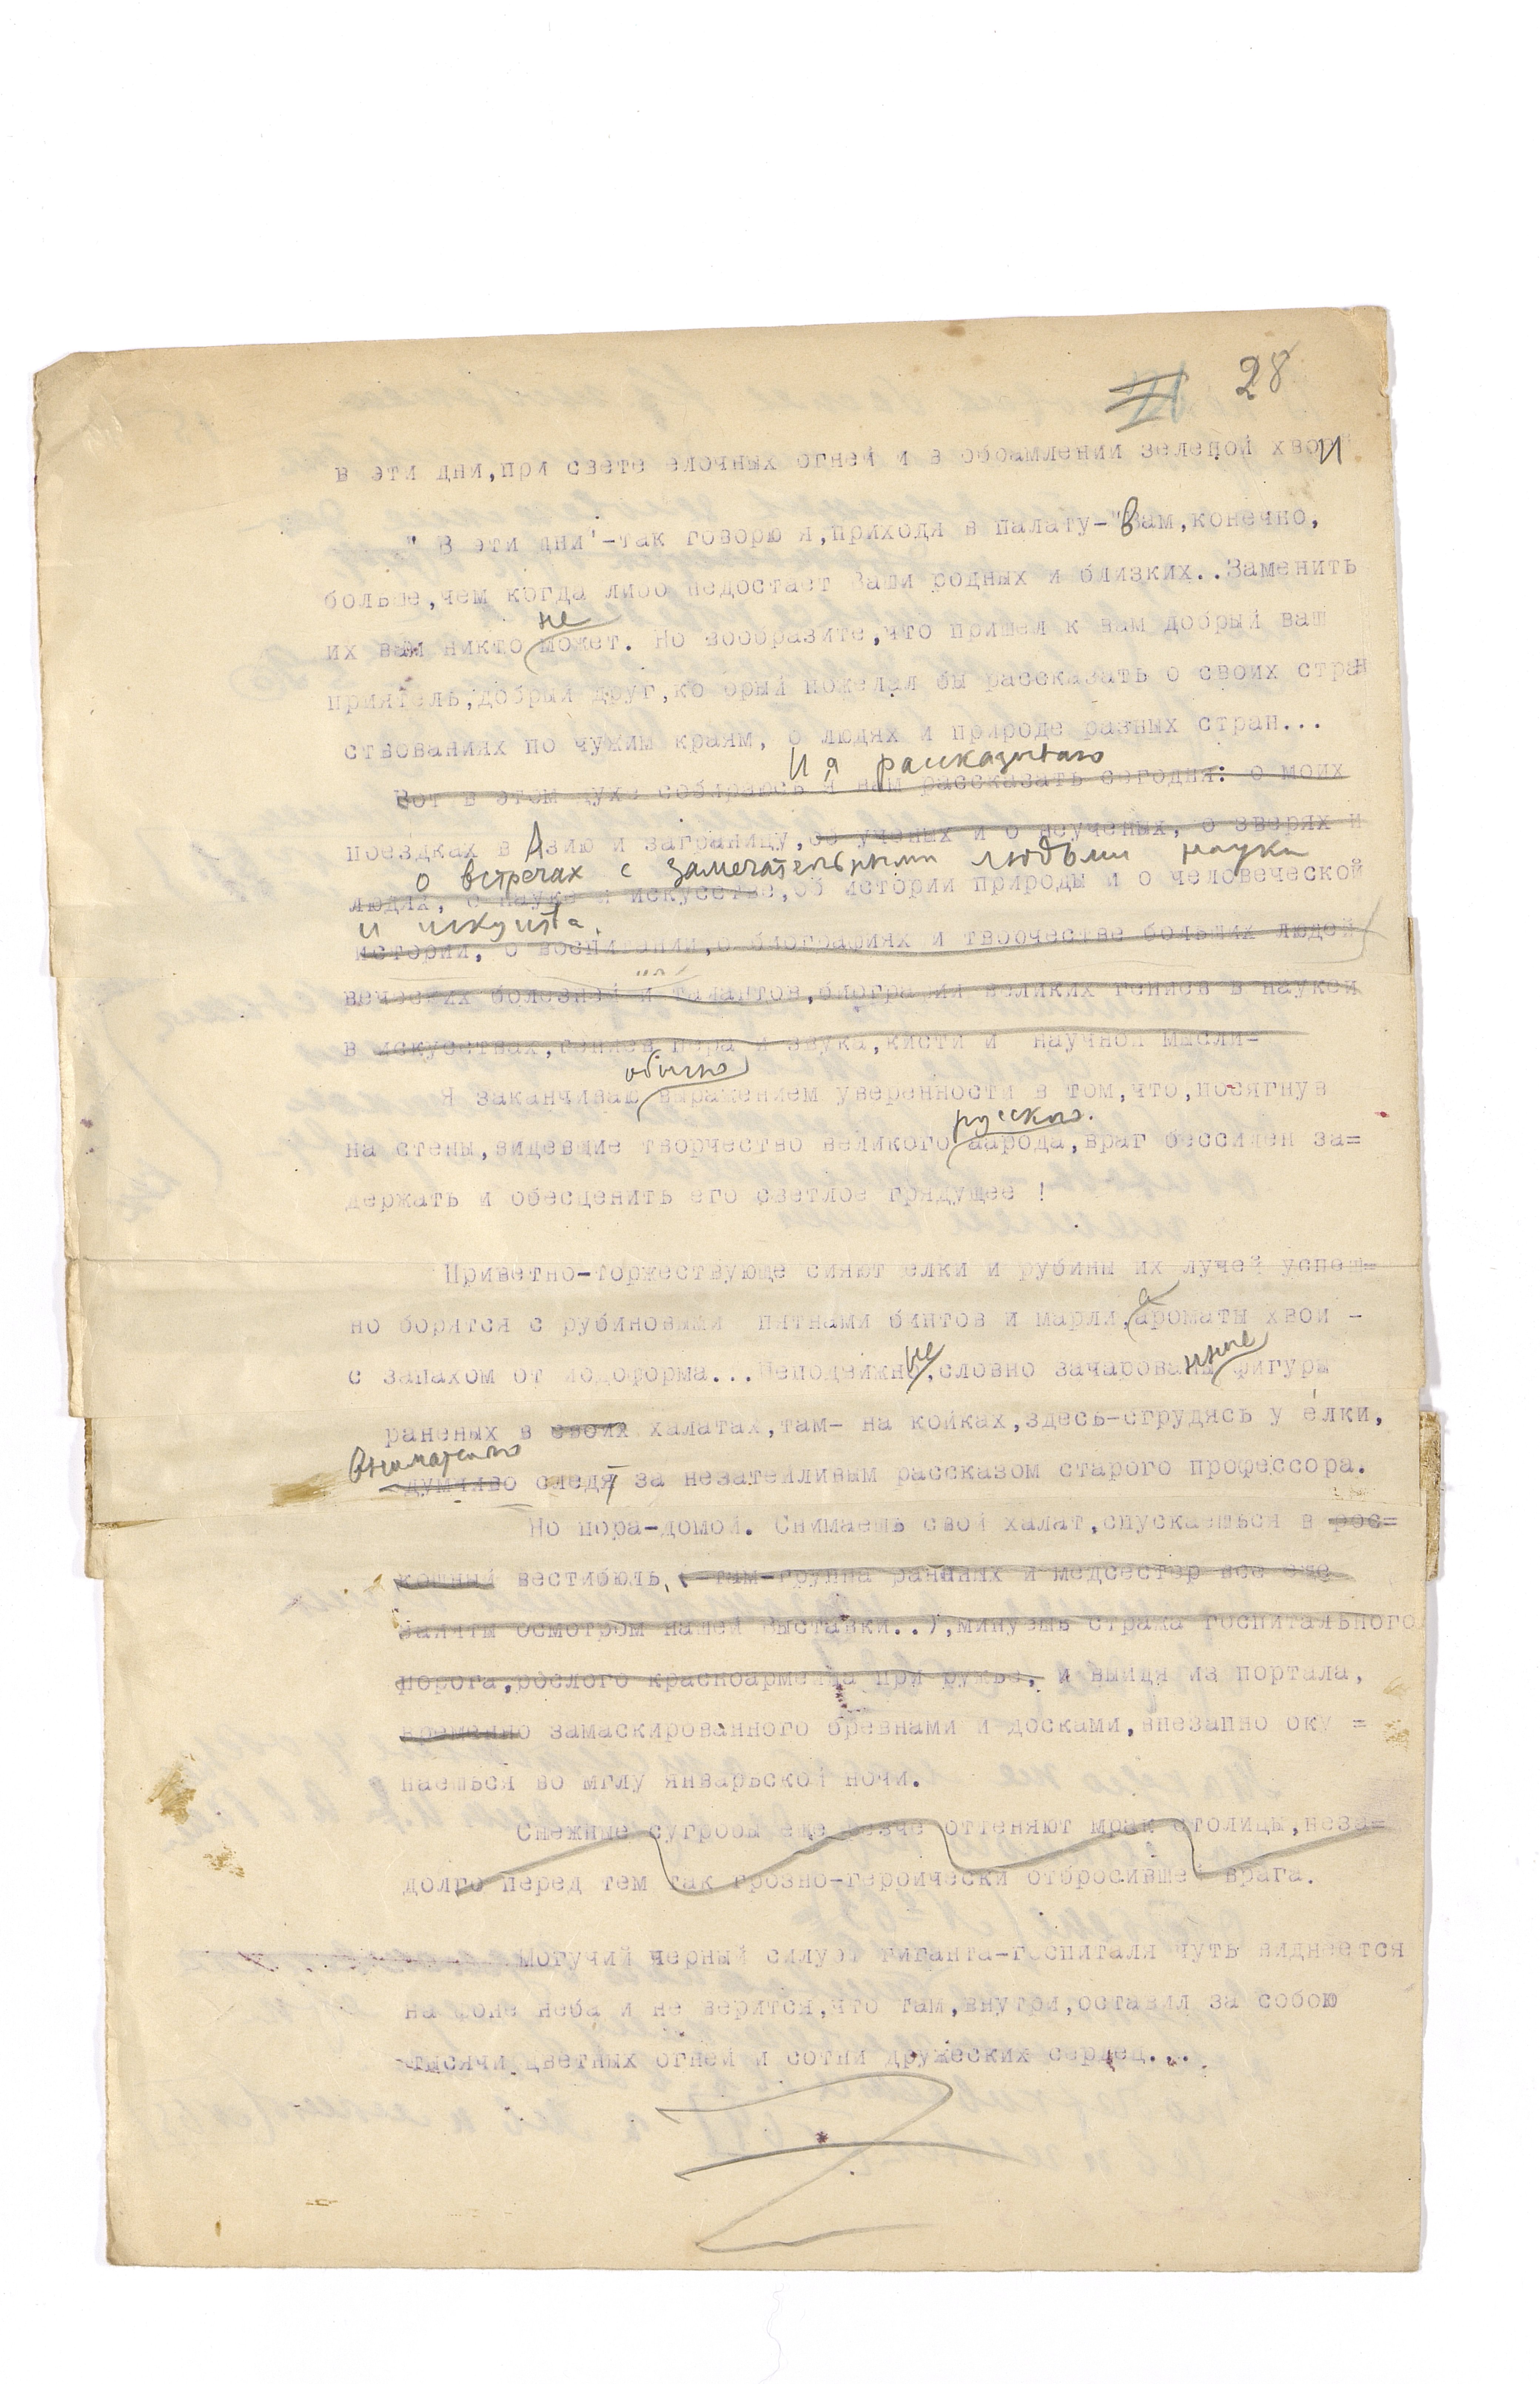 VI 28
в эти дни,при свете елочных огней и в обрамлении зеленой хвои
" В эти дни"-так говорю я,приходя в палату-"Вам,конечно,
больше,чем когда либо недостает Ваши родных и близких..Заменить
не
их вам никто может. Но вообразите,что пришел к вам добрый ваш
приятель,добрый друг,ко орый пожелал бы рассказать о своих стран
ствованиях по чужим краям, о людях и природе разных стран...
И я рассказываю
Вот в этом духе собираюсь я вам рассказать сегодня: о моих
поездках в Азию и заграницу,об ученых и о неученых, о зверях и
о встречах с замечательными людьми науки
людях, о науке и искусстве,об истории природы и о человеческой
и искусства.
истории, о воспитании,о биографиях и творчестве больших людей
веческих болезней и талантов,биографии великих гениев в науке и
в искусствах,гениев пера и звука,кисти и научной мысли=
обычно
Я заканчиваю выражением уверенности в том,что,посягнув
русского
на стены,видевшие творчество великого народа,враг бессилен за=
держать и обесценить его светлое грядущее !
Приветно-торжествующе сияют елки и рубины их лучей успеш=
а
но борятся с рубиновыми пятнами бинтов и марли,ароматы хвои -
не нные
с запахом от иодоформа...Неподвижны,словно зачарованы фигуры
раненых в своих халатах,там- на койках,здесь-сгрудясь у ёлки,
внимательно
думчиво следят за незатейливым рассказом старого профессора.
Но пора-домой. Снимаешь свой халат,спускаешься в рос=
кошный вестибюль, (-там-группа раненых и медсестер все еще
заняты осмотром нашей Выставки..),минуешь стража госпитального
порога,рослого красноармейца при ружье, и выйдя из портала,
временно замаскированного бревнами и досками,внезапно оку =
наешься во мглу январьской ночи.
Снежные сугробы еще резче оттеняют мрак столицы,неза=
долго перед тем так грозно-героически отбросившей врага.
Могучий черный силуэт гиганта-госпиталя чуть виднеется
на фоне неба и не верится,что там,внутри,оставил за собою
тысячи цветных огней и сотни дружеских сердец...